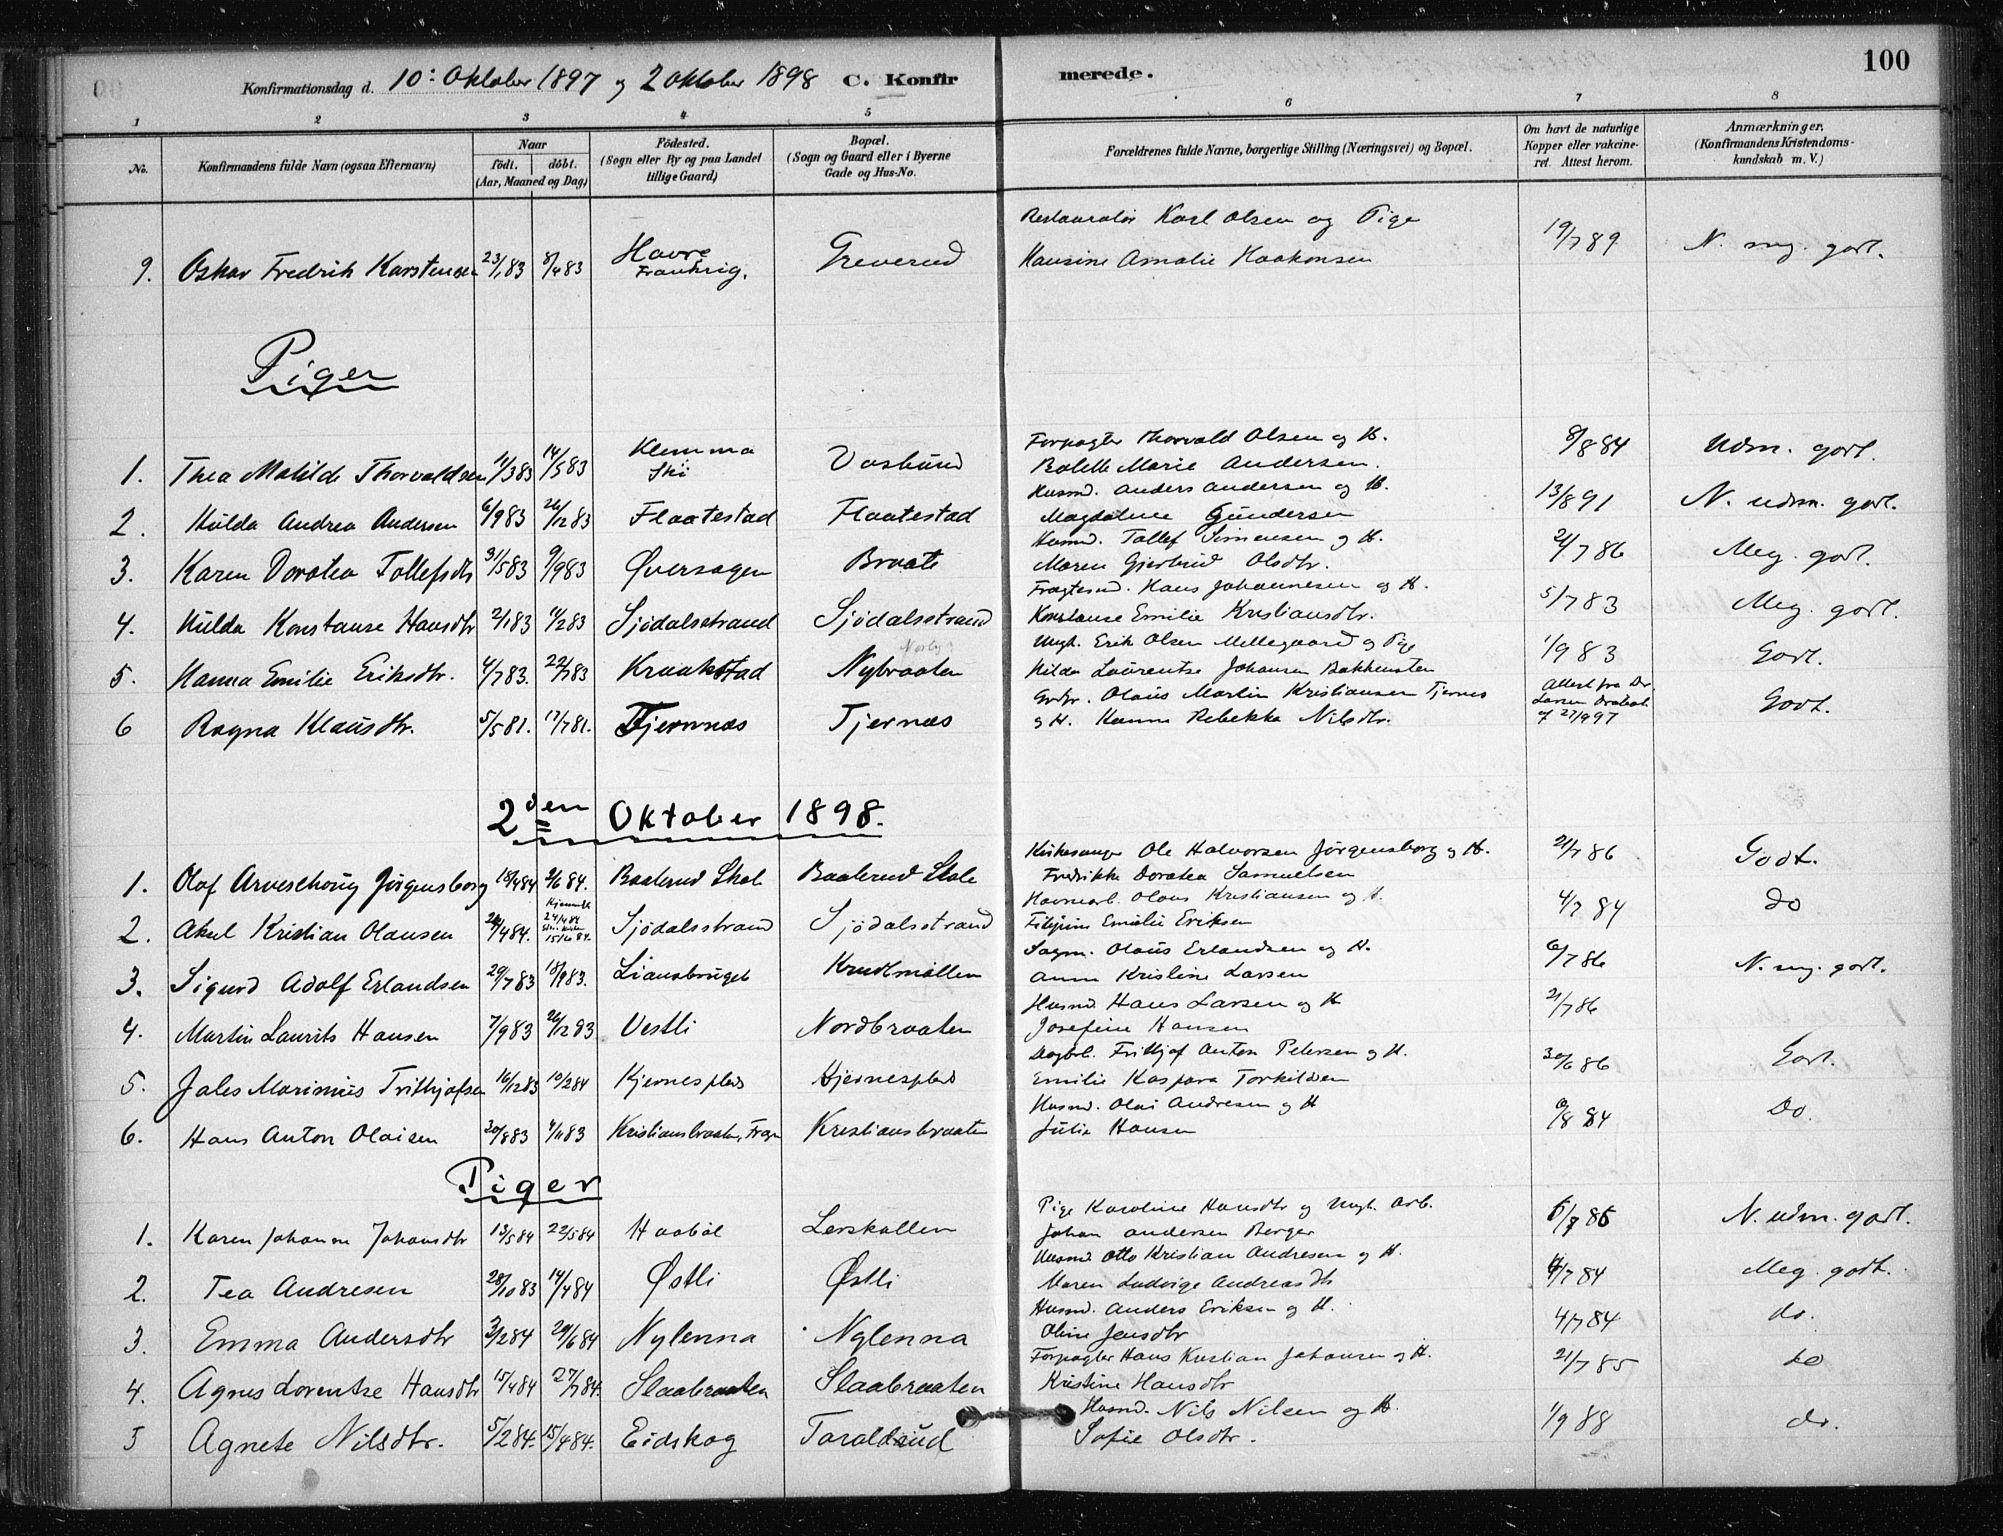 100
Konfirmationsdag d. 10: Oktober 1897 og 2 Oktober 1898 C. Konfirmerede.
1 2 3 4 5 6 7 8
No. Konfirmandens fulde Navn (ogsaa Efternavn) Naar födt. döbt. (Aar, Maaned og Dag) Födested. (Sogn eller By og paa Landet tillige Gaard) Bopæl. (Sogn og Gaard eller i Byerne Gade og Hus-No. Forældrenes fulde Navne, borgerlige Stilling (Næringsvei) og Bopæl. Om havt de naturlige Kopper eller vakcineret. Attest herom. Anmærkninger. (Konfirmandens Kristendomskundskab m. V.)
9. Oskar Fredrik Karstensen 23/1 83 8/4 83 Havre Frankrig. Greverud Restauratör Karl Olsen og Pige Hansine Amalie Haakonsen 19/7 89 N. mg. godt.
Piger
1. Thea Matilde Thorvaldsen 1/3 83 14/5 83 Klemma Ski Forpagter Thorvald Olsen og H. Bolette Marie Andersen. 8/8 84 Udm. godt.
2. Hulda Andrea Andersen 6/9 83 26/12 83 Flaatestad Flaatestad Husmd. Anders Andersen og H. Magdalene Gundersen 13/8 91 N. udm. godt.
3. Karen Dorotea Tollefsdtr 31/5 83 9/9 83 Øversagen Braate Husmd. Tollef Simensen og H. Maren Gjertrud Olsdtr. 2/7 86 Meg. godt.
4. Hulda Konstanse Hansdtr 2/1 83 11/2 83 Sjödalsstrand Sjödalsstrand Fragtesmd. Hans Johannesen og H. Konstanse Emilie Kristiansdtr. 5/7 83 Meg. godt.
5. Hanna Emilie Eriksdtr. 4/7 83. 22/7 83 Kraakstad Nybraaten Ungk. Erik Olsen Mellegaard og Pige Hilda Laurentse Johansen Bakkensten 1/9 83 Godt.
6 Ragna Klausdtr. 5/5 81. 17/7 81. Tjernnæs Tjernæs Olaus Martin Kristiansen Tjernes og H. Hanna Rebekka Nilsdtr. Attest fra Dr. Larsen Dröbak af 27/9 97 Godt.
2den Oktober 1898.
1. Olaf Arveschoug Jörgensborg 18/4 84 2/6 84. Baalerud Skol Baalerud Skole Kirkesanger Ole Halvorsen Jörgensborg og H. Fredrikke Dorotea Samuelsen 21/7 86 Godt.
2. Aksel Kristian Olausen Sjödalsstrand Sjödalsstrand Havnearb. Olaus Kristiansen og H. Emilie Eriksen 4/7 84 do
3. Sigurd Adolf Erlandsen 29/7 83 18/9 83. Liansbruget Krudtmöllen Sagm. Olaus Erlandsen og H. Anna Kristine Larsen 6/7 86 N. mg. godt.
4. Martin Laurits Hansen 7/9 83 26/12 83 Vestli Nordbraaten Husmd. Hans Larsen og H Josefine Hansen 21/7 86
5. Jales Marinius Frithjofsen 16/12 83 10/2 84 Kjernesplads Kjernesplads Dagarb. Frithjof Anton Petersen og H. Emilie Kaspara Torkildsen 30/6 86 Godt.
6. Hans Anton Olaisen 30/8 83 4/11 83 Kristiansbraaten, Frogn Kristiansbraaten Husmd. Olai Andresen og H Julie Hansen 6/8 84 Do.
Piger
1. Karen Johanne Johansdtr 13/5 84 22/5 84 Haaböl Lerskallen Pige Karoline Hansdtr og Ungk. Arb. Johan Andersen Berger N. udm. godt.
2. Tea Andresen 28/10 83 14/4 84 Østli Østli Husmd Otto Kristian Andresen og H. Maren Ludvige Andreasdtr 4/7 84 Meg. godt.
3. Emma Andersdtr 3/2 84 29/6 84 Nylenna Nylenna Husmd. Anders Eriksen og H. Oline Jensdtr 4/7 84 do.
4. Agnes Lorentse Hansdtr 15/4 84 27/7 84. Slaabraaten Slaabraaten Forpagter Hans Kristian Johansen og H. Kristine Hansdtr 21/7 85 do
5 Agnete Nilsdtr. 5/2 84. 15/4 84. Eidskog Taraldrud Husmd. Nils Nilsen og H. Sofie Olsdtr. 1/9 88 do.